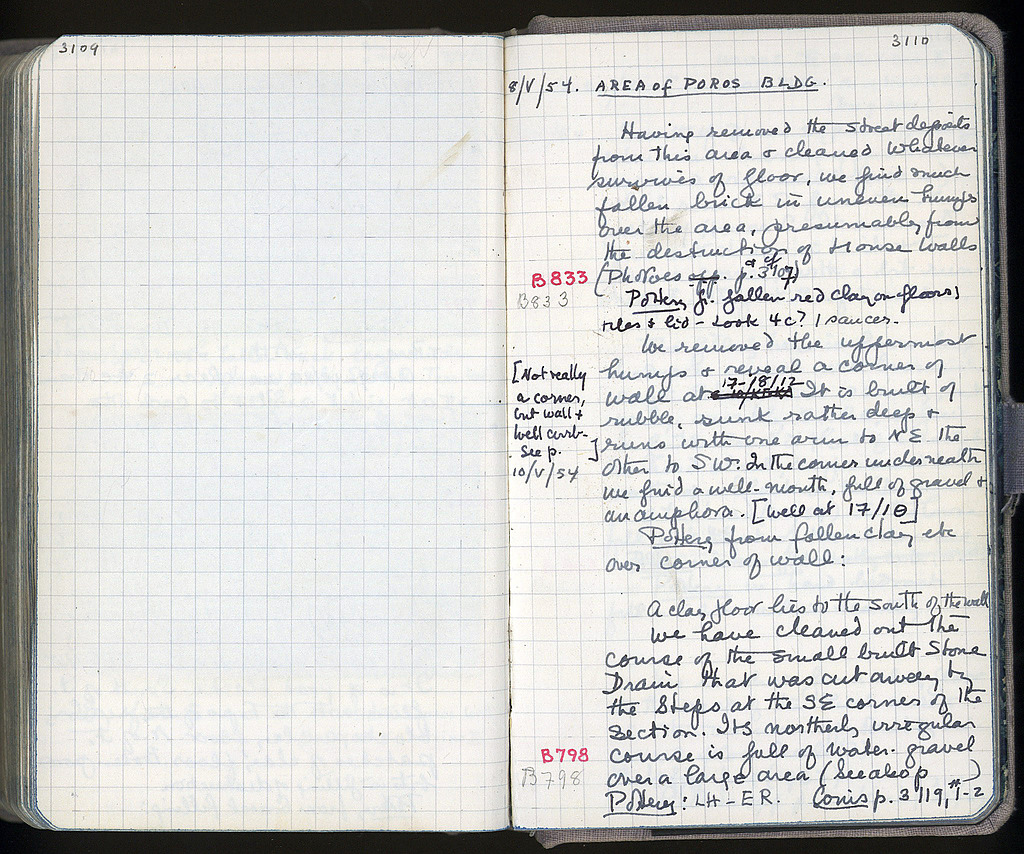 3109
3110
8/V/54. AREA of POROS BLDG.
Having removed the street deposits
from this area & cleaned whatever
survives of floor, we find much
fallen brick in uneven humps
over the area, presumably from
the destruction of House walls
(Photoes p. 3107)
B833
B833
Pottery fr. fallen red clay on floors,
tiles & lid - Look 4c? 1 saucer.
We removed the uppermost
humps & reveal a corner of
wall at 17-/8/12 It is built of
rubble, sunk rather deep &
runs with one arm to NE the
other to SW. In the corner underneath
we find a well-mouth, full of gravel &
an amphora. [Well at 17/1Θ]
[Not really
a corner,
but wall &
well curb-
See p.
10/V/54
]
Pottery from fallen clay etc
over corner of wall:
A clay floor lies to the south of the wall
We have cleaned out the
course of the small built Stone
Drain that was cut away by
the Steps at the SE corner of the
section. Its northerly irregular
course is full of water-gravel
over a large area (See also p )
B798
B798
Pottery: LH-ER. Coins p. 3119, #1-2